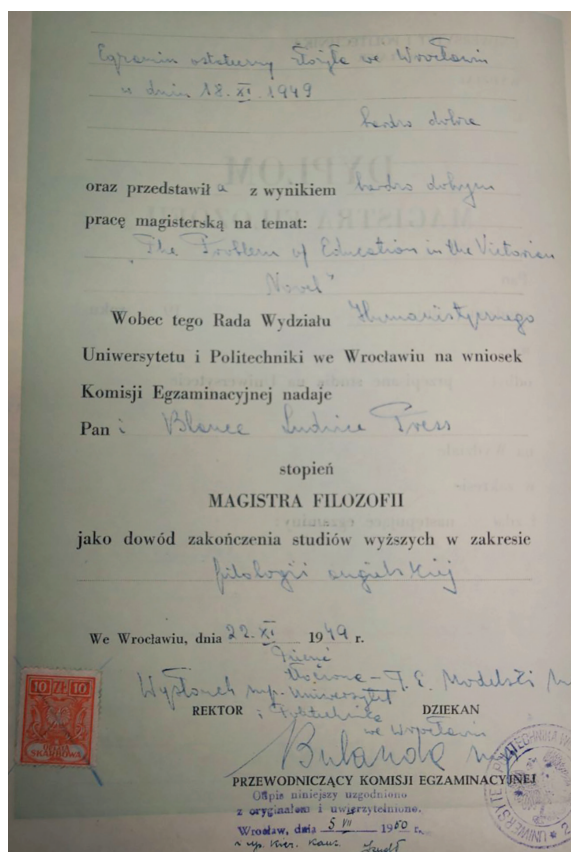 Egzamin ostateczny złożyła we Wrocławiu
w dniu 18. XI. 1949
bardzo dobrze
oraz przedstawił a z wynikiem bardzo dobrym
pracę magisterską na temat:
"The Problem of Education in the Victorian
Novel"
Wobec tego Rada Wydziału Humanistycznego
Uniwersytetu i Politechniki we Wrocławiu na wniosek
Komisji Egzaminacyjnej nadaje
Pan i Blance Ludwice Press
stopień
MAGISTRA FILOZOFII
jako dowód zakończenia studiów wyższych w zakresie
filologii angielskiej
We Wrocławiu, dnia 22. XI 1949 r.
Wysłouch mp. Uniwersytet T. E. Modelski
REKTOR i Politechnika DZIEKAN
we Wrocławiu
Bulanda mp
PRZEWODNICZĄCY KOMISJI EGZAMINACYJNEJ
10 ZŁ 10
SKARBOWA
Odpis niniejszy uzgodniono
z oryginałem i uwierzytelniono.
Wrocław, dnia 5 VII 1950 r.